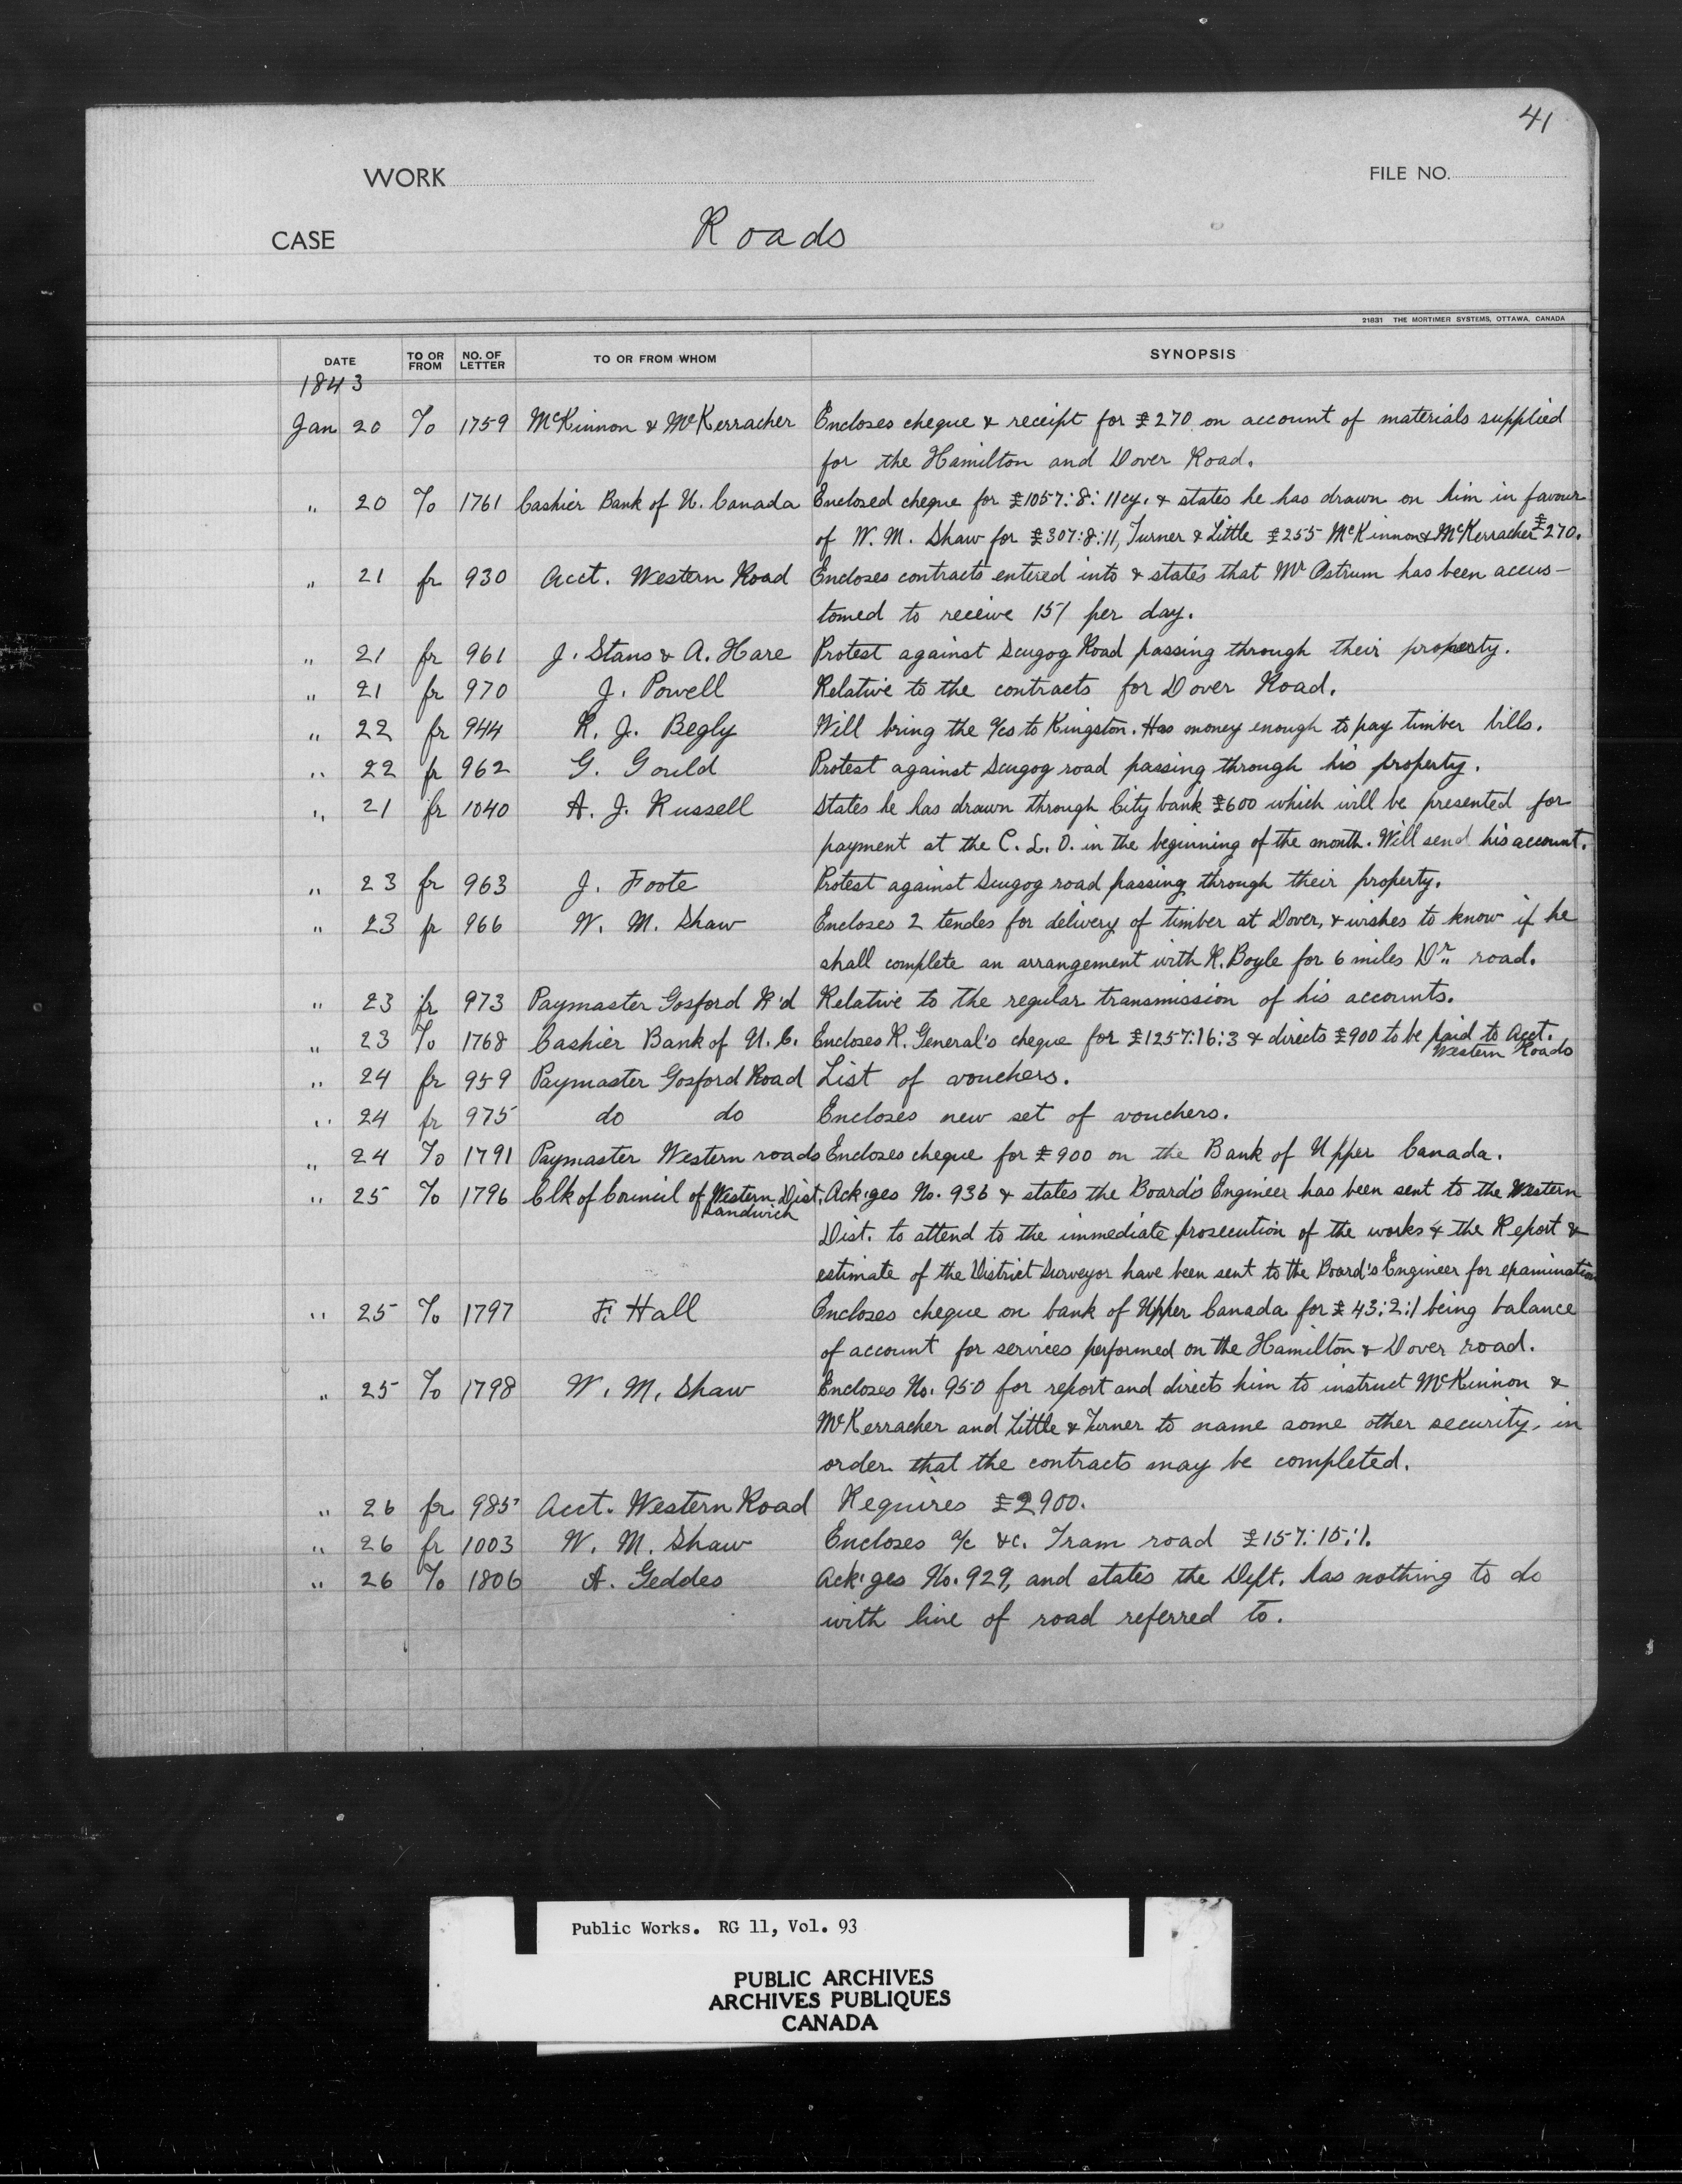 41
WORK
FILE NO.
CASE
Roads
21831 THE MORTIMER SYSTEMS, OTTAWA, CANADA
DATE TO OR FROM NO. OF LETTER TO OR FROM WHOM SYNOPSIS
1843
Jan 20 To 1759 McKinnon & McKerracher Encloses cheque & receipt for £270 on account of materials supplied
for the Hamilton and Dover Road.
" 20 To 1761 Cashier Bank of U. Canada Enclosed cheque for £1057:8:11cy. & states he has drawn on him in favour
of W. M. Shaw for £307:8:11, Turner & Little £255 McKinnon & McKerracher £270.
" 21 fr 930 Acct. Western Road Encloses contracts entered into & states that Mr Ostrum has been accus-
tomed to receive 15/ per day.
" 21 fr 961 J. Stans & A. Hare Protest against Scugog Road passing through their property.
" 21 fr 970 J. Powell Relative to the contracts for Dover Road.
" 22 fr 944 R. J. Begly Will bring the a/cs to Kingston. Has money enough to pay timber bills.
" 22 fr 962 G. Gould Protest against Scugog road passing through his property.
" 21 fr 1040 A. J. Russell States he has drawn through City bank £600 which will be presented for
payment at the C. L. O. in the beginning of the month. Will send his account.
" 23 fr 963 J. Foote Protest against Scugog road passing through their property.
" 23 fr 966 W. M. Shaw Encloses 2 tendes for delivery of timber at Dover, & wishes to know if he
shall complete an arrangement with R. Boyle for 6 miles Dr. road.
" 23 fr 973 Paymaster Gosford R'd Relative to the regular transmission of his accounts.
" 23 To 1768 Cashier Bank of U. C. Encloses R. General's cheque for £1257:16:3 & directs £900 to be paid to Acct.
Western Roads
" 24 fr 959 Paymaster Gosford Road List of vouchers.
" 24 fr 975 do do Encloses new set of vouchers.
" 24 To 1791 Paymaster Western roads Encloses cheque for £900 on the Bank of Upper Canada.
" 25 To 1796 Clk of Council of Western Dist. Ack'ges No. 936 & states the Board's Engineer has been sent to the Western
Sandwich
Dist. to attend to the immediate prosecution of the works & the Report &
estimate of the District Surveyor have been sent to the Board's Engineer for examination
" 25 To 1797 F. Hall Encloses cheque on bank of Upper Canada for £43:2:1 being balance
of account for services performed on the Hamilton & Dover road.
" 25 To 1798 W. M. Shaw Encloses No. 950 for report and directs him to instruct McKinnon &
McKerracher and Little & Turner to name some other security, in
order that the contracts may be completed.
" 26 fr 985 Acct. Western Road Requires £2900.
" 26 fr 1003 W. M. Shaw Encloses a/c &c. Tram road £157:15:1.
" 26 To 1806 A. Geddes Ack'ges No. 929, and states the Dept. has nothing to do
with line of road referred to.
Public Works. RG 11, Vol. 93
PUBLIC ARCHIVES
ARCHIVES PUBLIQUES
CANADA